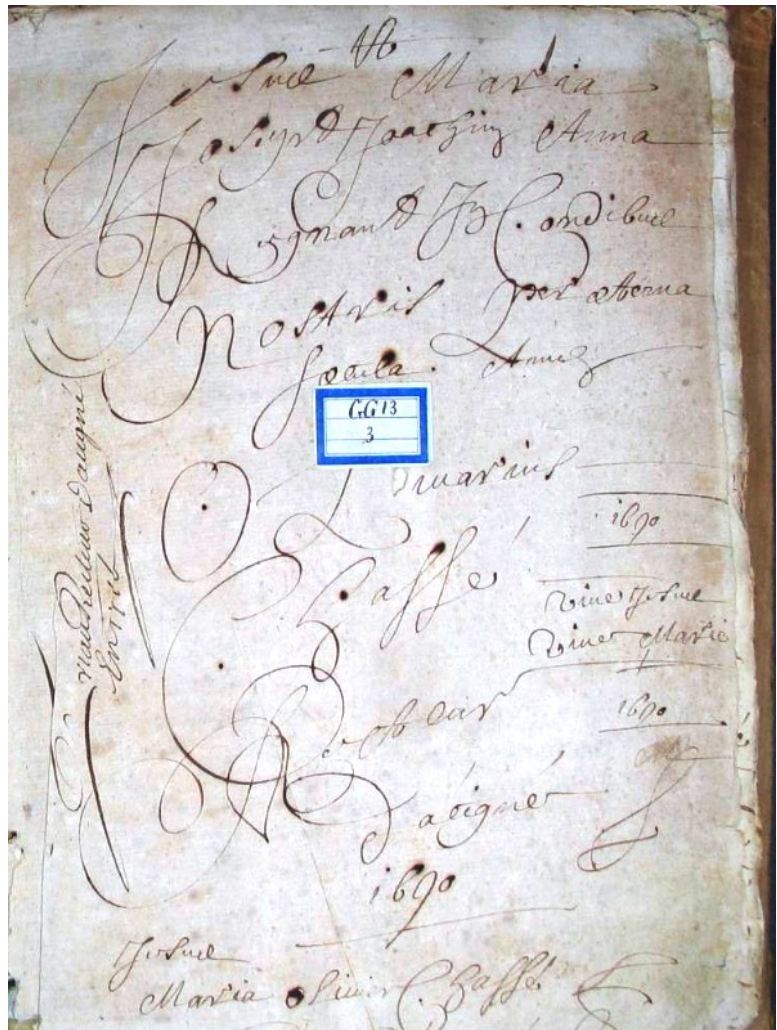 Jesus Maria
Joseph Joachim Anna
Regnant In Cordibus
Nostris per æterna
sæcula. Amen
GG 13
3
Olivarius
1690
Chassé
Vive Jesus
Vive Marie
Rector
1690
D'acigné
1690
Jesus
Maria Olivier Chassé